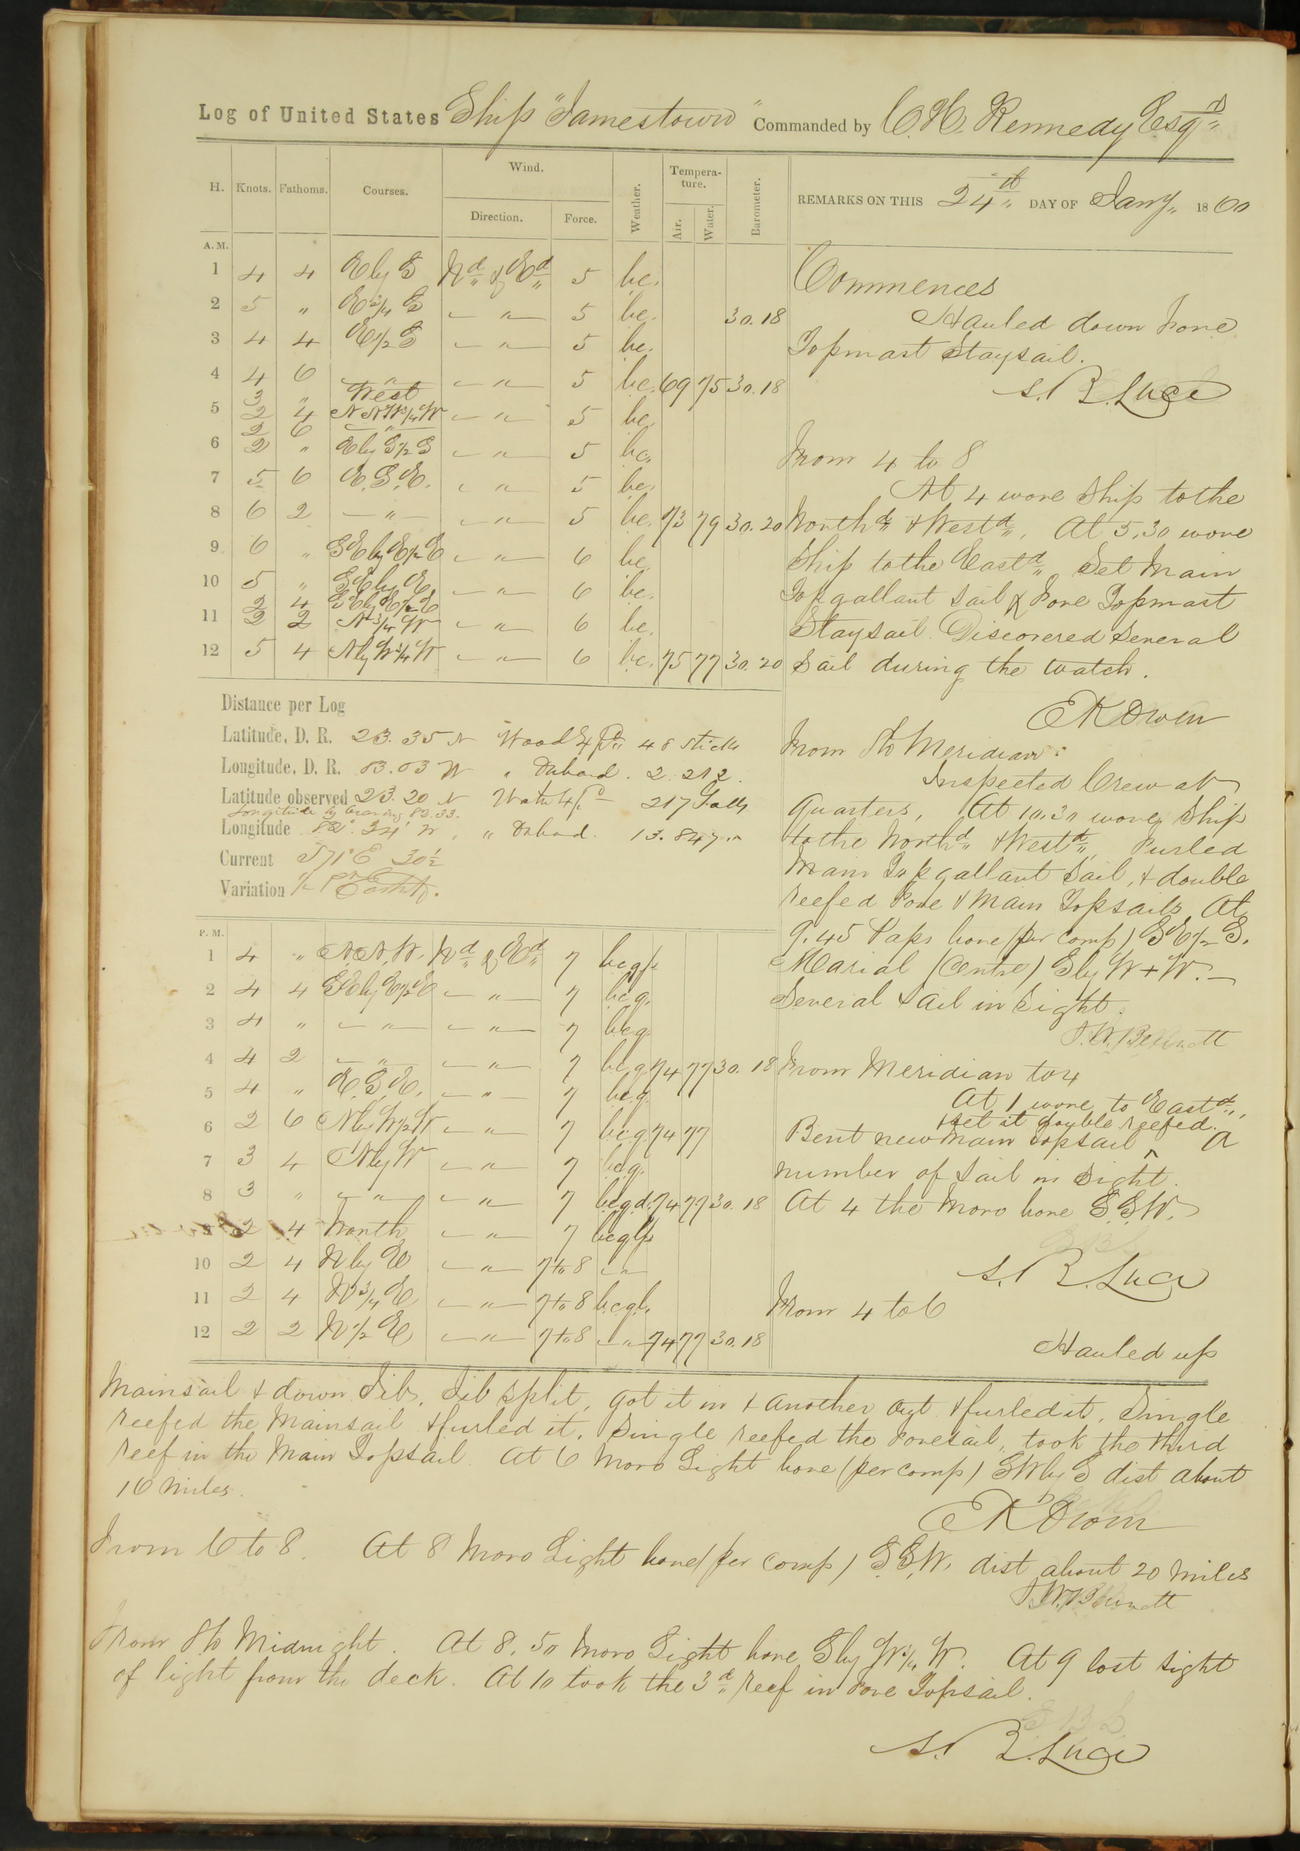 Log of United States Ship "Jamestown" Commanded by C. H. Kennedy Esqr
H. Knots. Fathoms. Courses. Wind. Direction. Force. Weather. Temperature. Air. Water. Barometer.
REMARKS ON THIS 24th DAY OF Jany 1860
A. M.
1 4 4 E by S Nd & Ed 5 bc.
2 5 " E 3/4 S — " — 5 bc. 30.18
3 4 4 E 1/2 S — " — 5 bc.
4 4 6 — " — — " — 5 bc. 69 75 30.18
3 " West
5 2 4 N.N.W 3/4 W — " — 5 bc.
2 6 — " —
6 2 " E by S 1/2 S — " — 5 bc.
7 5 6 E.S.E. — " — 5 bc.
8 6 2 — " — " — 5 bc. 73 79 30.20
9 6 " SE by E 1/2 E — " — 6 bc.
10 5 " SE by E. — " — 6 bc.
2 4 SE by E 1/2 E
11 3 2 N 3/4 W — " — 6 bc.
12 5 4 N by W 3/4 W — " — 6 bc. 75 77 30.20
Commences
Hauled down Fore
Topmast Staysail.
S. B. Luce
From 4 to 8
At 4 wore Ship to the
Northd & Westd. At 5.30 wore
Ship to the Eastd Set Main
Topgallant Sail & Fore Topmast
Staysail. Discovered several
Sail during the watch.
E K Owen
Distance per Log
Latitude, D. R. 23.35 N Wood Expd 48 sticks
Longitude, D. R. 83.03 W " Onboard. 2.212.
Latitude observed 23.20 N Water Expd 217 Galls
Longitude by bearing 82.33.
Longitude 82° 34' W " Onboard. 13.847 "
Current S 71° E 30 1/2
Variation Easterly.
From 8 to Meridian:
Inspected Crew at
Quarters. At 10.30 wore Ship
to the Northd & Westd, Furled
Main Topgallant Sail, & double
reefed Fore & Main Topsails. At
9.45 Paps bore (per comp) SE 1/2 S.
Marial (Centre) S by W + W. —
Several Sail in Sight.
P. M.
1 4 " N.N.W. Nd & Ed 7 bcgp
2 4 4 SE by E 1/2 E — " — 7 bcg.
3 4 " — " — — " — 7 bcg
4 4 2 — " — — " — 7 bcg 74 77 30.18
5 4 " E.S.E. — " — 7 bcg.
6 2 6 N by W 1/2 W — " — 7 bcg 74 77
7 3 4 N by W — " — 7 bcg.
8 3 " — " — — " — 7 bcgd. 74 77 30.18
2 4 North — " — 7 bcgp
10 2 4 N by E — " — 7 to 8 — " —
11 2 4 N 3/4 E — " — 7 to 8 bcg.
12 2 2 N 1/2 E — " — 7 to 8 — " — 74 77 30.18
From Meridian to 4
At 1 wore to Eastd,
& set it double reefed.
Bent new Main Topsail ^ A
number of Sail in Sight.
At 4 the Moro bore S.S.W.
S. B. Luce
From 4 to 6
Hauled up
Mainsail & down Jib, Jib split, got it in & another out & furled it. Single
reefed the Mainsail & furled it. Single reefed the Foresail, took the third
reef in the Main Topsail. At 6 Moro Light bore (per comp) SW by S dist about
16 miles.
E K Owen
From 6 to 8. At 8 Moro Light bore (per comp) S.S.W. dist about 20 miles
From 8 to Midnight. At 8.50 Moro Light bore S by W 3/4 W. At 9 lost sight
of light from the deck. At 10 took the 3d reef in Fore Topsail.
S. B. Luce